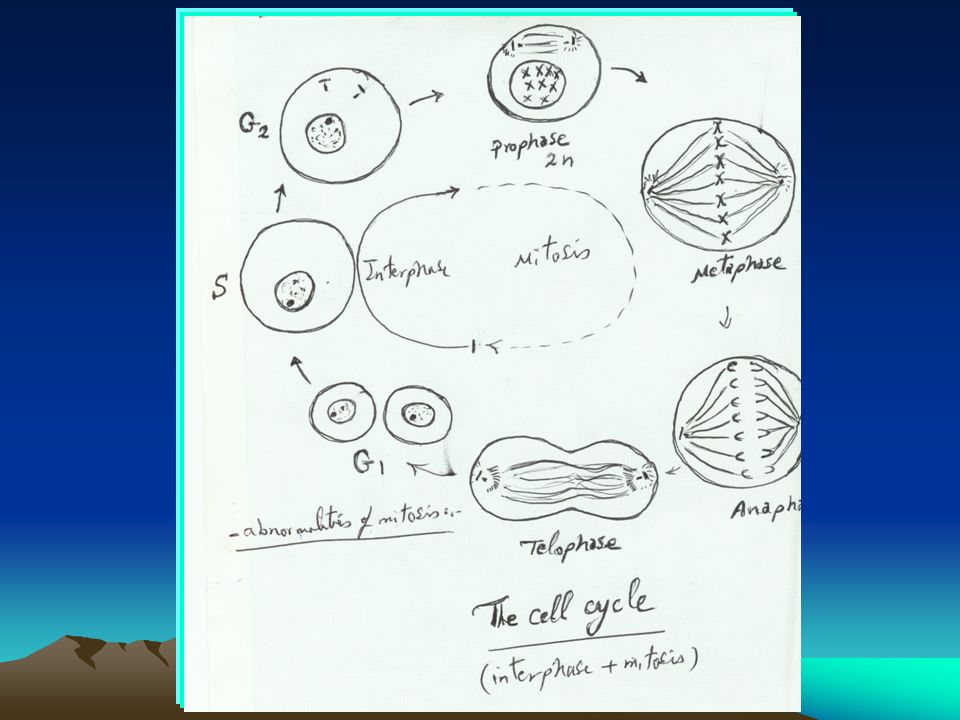 G2
Prophase
2n
Metaphase
S
Interphase
Mitosis
G1
Anapha
Telophase
- abnormalities of mitosis :-
The cell cycle
(interphase + mitosis)